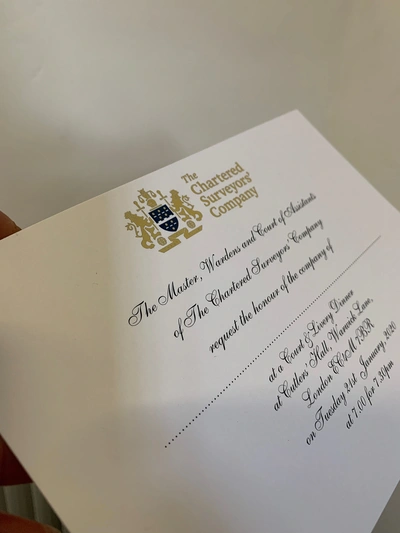 The
Chartered
Surveyors'
Company
The Master, Wardens and Court of Assistants
of The Chartered Surveyors' Company
request the honour of the company of
at a Court & Livery Dinner
at Cutlers' Hall, Warwick Lane,
London EC4M 7BR
on Tuesday 21st January 2020
at 7.00 for 7.30pm